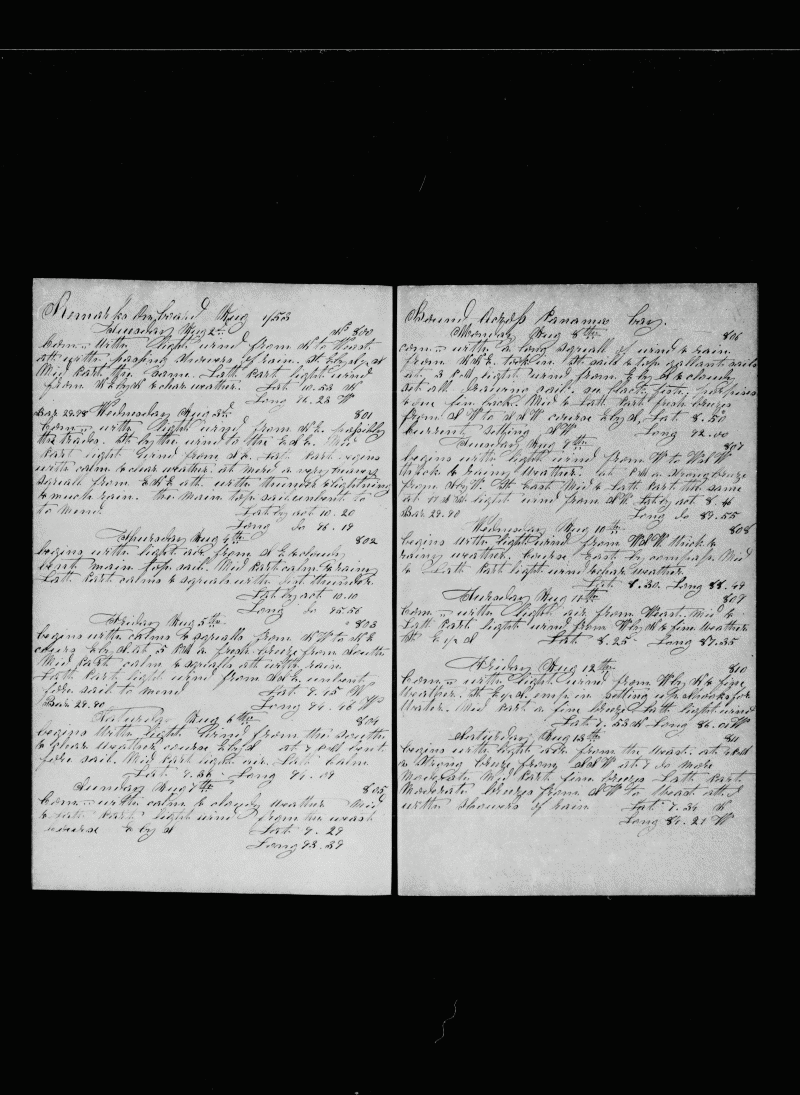 Remarks on board Aug 1853
Tuesday Aug 2nd No 800
Com= with light wind from N to West
att with passing showers of rain. St E by S
Mid part the same. Latt part light wind
from & clear weather. Lat 10.53 N
Long 96.23 W
Bar 29.98 Wednesday Aug 3rd 801
Com= with light wind from N E possibly
the trades. St by the wind to the E S E. Mid
part light wind from N E. Latt part
with calm & clear weather. at
squall from E N E att with thunder & lightning
& much rain. the main top sail unbent to
to mend Lat by act 10.20
Long do 96.19
Thursday Aug 4th 802
begins with light air from & cloudy
bent main top sail. Mid part calm & rainy
Latt part calms & squals with thunder.
Lat by act 10.10
Long do 95.56
Friday Aug 5th 803
begins with calms & squalls from S W to N E
cours E by S at 5 PM a fresh breeze from South
Mid part calm & squals att with rain
Latt part light wind from unbent
fore sail to mend Lat 9.45 N
Bar 29.90 Long 94.48 W
Saturday Aug 6th 804
begins with light wind from the South
& clear weather course E by S at 7 PM bent
fore sail. Mid part light air. Latt calm
Latt 9.36 Long 94.09
Sunday Aug 7th 805
Com= with calm & cloudy weather Mid
& latt part light wind from the west
course E by S Latt 9.29
Long 93.39
Bound Across Panama bay.
Monday Aug 8th 806
com= with a long squall of wind & rain
from took in stt sails & top gallant sails
at 3 PM light wind from & cloudy
set all drawing sail. saw porpoises
& one fin back. Mid & Latt part fresh breezes
from S W to S S W course E by S, Lat 8.50
Current setting Long 92.00
Tuesday Aug 9th 807
begins with light wind from W to WSW
thick & rainy weather. at PM a strong breeze
from St East Mid & Latt part the same
at light wind from Lat by act 8.41
Bar 29.90 Long do 89.55
Wednesday Aug 10th 808
begins with light wind from WSW thick &
rainy weather. Course East by compass. Mid
& Latt part light wind & clear weather
Latt 8.30. Long 88.49
Thursday Aug 11th 809
com= with light air from West. Mid &
Latt part light wind from W by N & fine weather
St E by S Latt 8.25 Long 87.35
Friday Aug 12th 810
Com= with light wind from W by N & fine
weather. St E by S emp in setting up shooks for
water. Mid part a fine breeze Latt light wind
Latt 7.53 N Long 86.01 W
Saturday Aug 13th 811
begins with light air from the West. at PM
a strong breeze from SSW at 7 do more
moderate Mid part fine breezes Latt part
Moderate breezes from S W to West att
with showers of rain Latt 7.34 N
Long 84.21 W